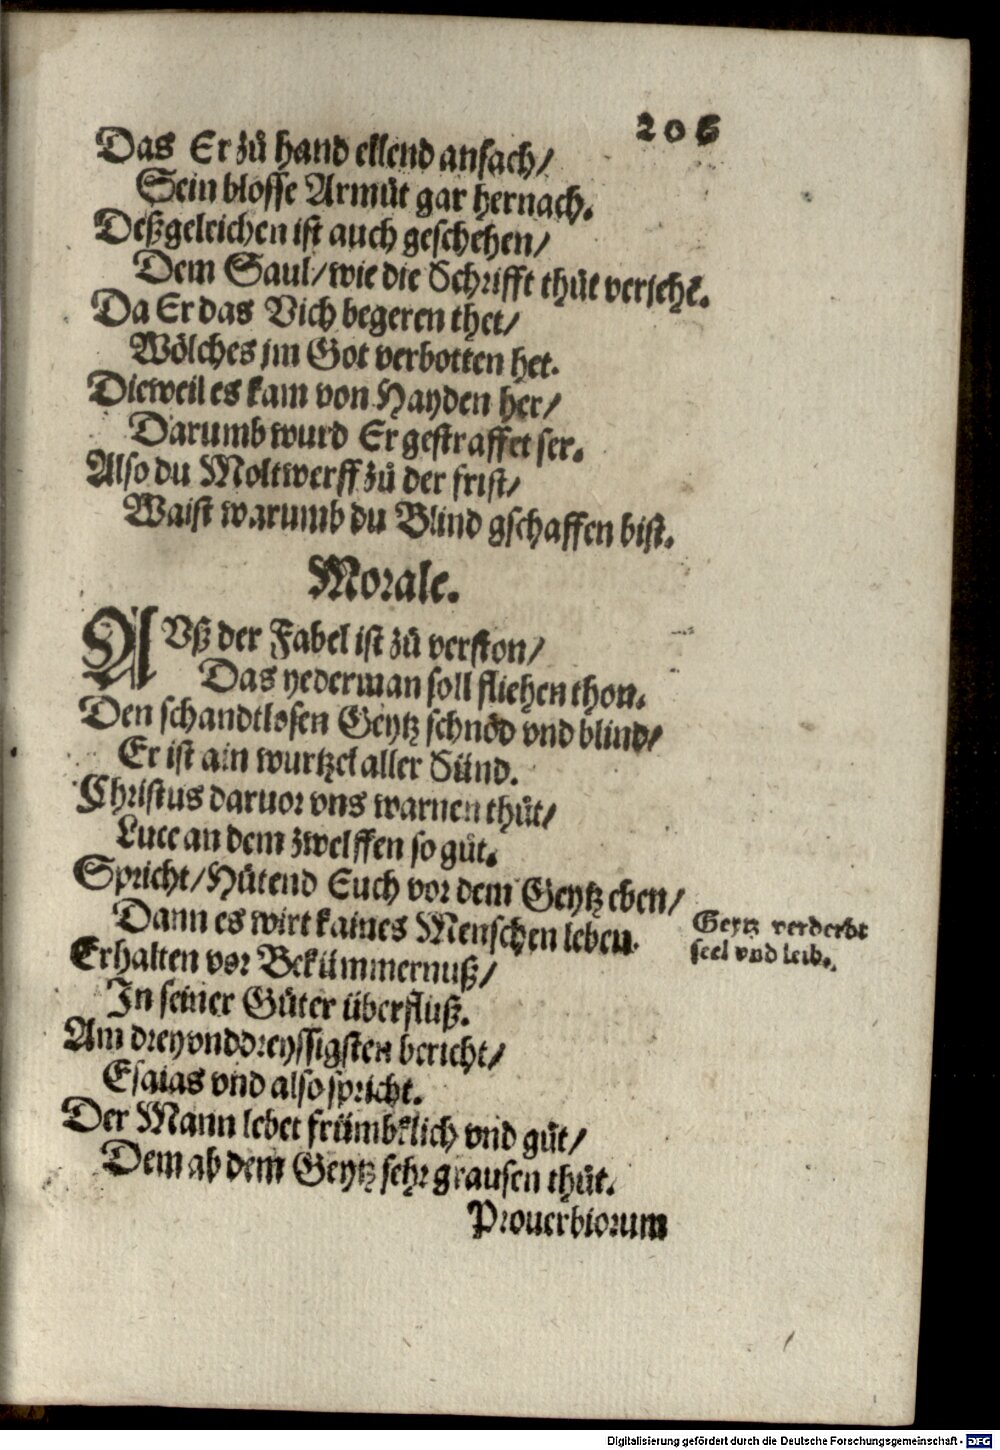 206
Das Er zů hand ellend ansach/
Sein blosse Armůt gar hernach.
Deßgeleichen ist auch geschehen/
Dem Saul/ wie die Schrifft thůt veriehẽ.
Da Er das Vich begeren thet/
Wölches jm Got verbotten het.
Dieweil es kam von Hayden her/
Darumb wurd Er gestraffet ser.
Also du Moltwerff zů der frist/
Waist warumb du Blind gschaffen bist.
Morale.
AVß der Fabel ist zů verston/
Das yederman soll fliehen thon.
Den schandtlosen Geytz schnöd vnd blind/
Er ist ain wurtzel aller Sünd.
Christus daruor vns warnen thůt/
Luce an dem zwelfften so gůt.
Spricht/ Hütend Euch vor dem Geytz eben/
Dann es wirt kaines Menschen leben.
Geytz verderbt
seel vnd leib.
Erhalten vor Bekümmernuß/
In seiner Gůter überfluß.
Am dreyvnddreyssigsten bericht/
Esaias vnd also spricht.
Der Mann lebet frümbklich vnd gůt/
Dem ab dem Geytz sehr grausen thůt.
Prouerbiorum
Digitalisierung gefördert durch die Deutsche Forschungsgemeinschaft - DFG